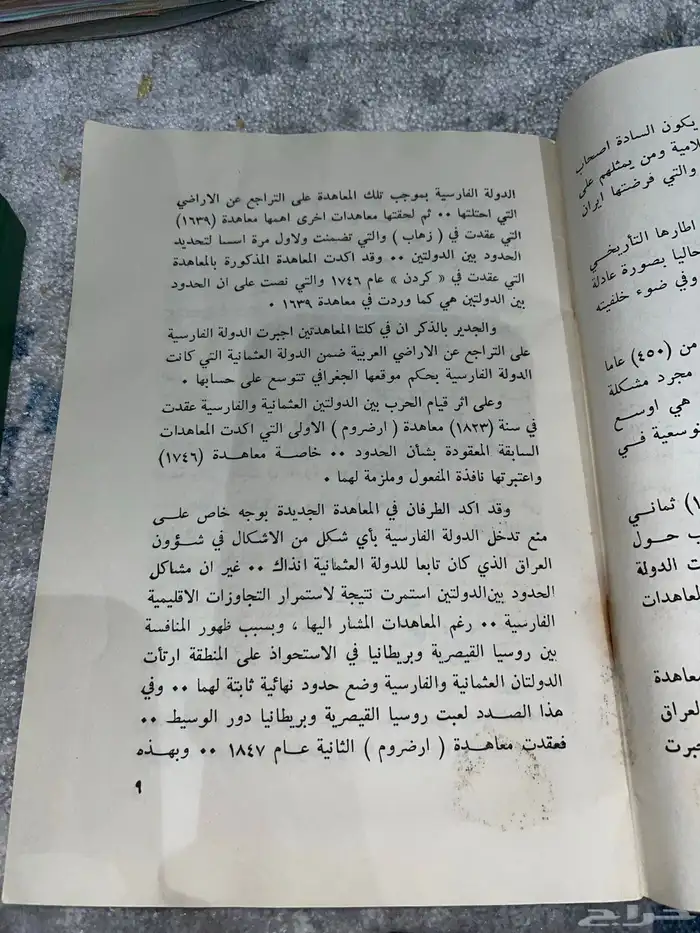 الدولة الفارسية بموجب تلك المعاهدة على التراجع عن الاراضي
التي احتلتها ٠٠ ثم لحقتها معاهدات اخرى اهمها معاهدة (١٦٣٩)
التي عقدت في ( زهاب ) والتي تضمنت ولاول مرة اسسا لتحديد
الحدود بين الدولتين ٠٠ وقد اكدت المعاهدة المذكورة بالمعاهدة
التي عقدت في « كردن » عام ١٧٤٦ والتي نصت على ان الحدود
بين الدولتين هي كما وردت في معاهدة ١٦٣٩ ٠
والجدير بالذكر ان في كلتا المعاهدتين اجبرت الدولة الفارسية
على التراجع عن الاراضي العربية ضمن الدولة العثمانية التي كانت
الدولة الفارسية بحكم موقعها الجغرافي تتوسع على حسابها ٠
وعلى اثر قيام الحرب بين الدولتين العثمانية والفارسية عقدت
في سنة (١٨٢٣) معاهدة ( ارضروم ) الاولى التي اكدت المعاهدات
السابقة المعقودة بشأن الحدود ٠٠ خاصة معاهدة (١٧٤٦)
واعتبرتها نافذة المفعول وملزمة لهما ٠
وقد اكد الطرفان في المعاهدة الجديدة بوجه خاص على
منع تدخل الدولة الفارسية بأي شكل من الاشكال في شؤون
العراق الذي كان تابعا للدولة العثمانية انذاك ٠٠ غير ان مشاكل
الحدود بين الدولتين استمرت نتيجة لاستمرار التجاوزات الاقليمية
الفارسية ٠٠ رغم المعاهدات المشار اليها ، وبسبب ظهور المنافسة
بين روسيا القيصرية وبريطانيا في الاستحواذ على المنطقة ارتأت
الدولتان العثمانية والفارسية وضع حدود نهائية ثابتة لهما ٠٠ وفي
هذا الصدد لعبت روسيا القيصرية وبريطانيا دور الوسيط ٠٠
فعقدت معاهدة ( ارضروم ) الثانية عام ١٨٤٧ ٠٠ وبهذه
٩
يكون السادة اصحاب
لامية ومن يمثلهم على
والتي فرضتها ايران
اطارها التأريخي
حاليا بصورة عادلة
وفي ضوء خلفيته
من (٤٥٠) عاما
مجرد مشكلة
هي اوسع
توسعية في
ثماني
حول
ت الدولة
لمعاهدات
معاهدة
لعراق
جبرت
حراج